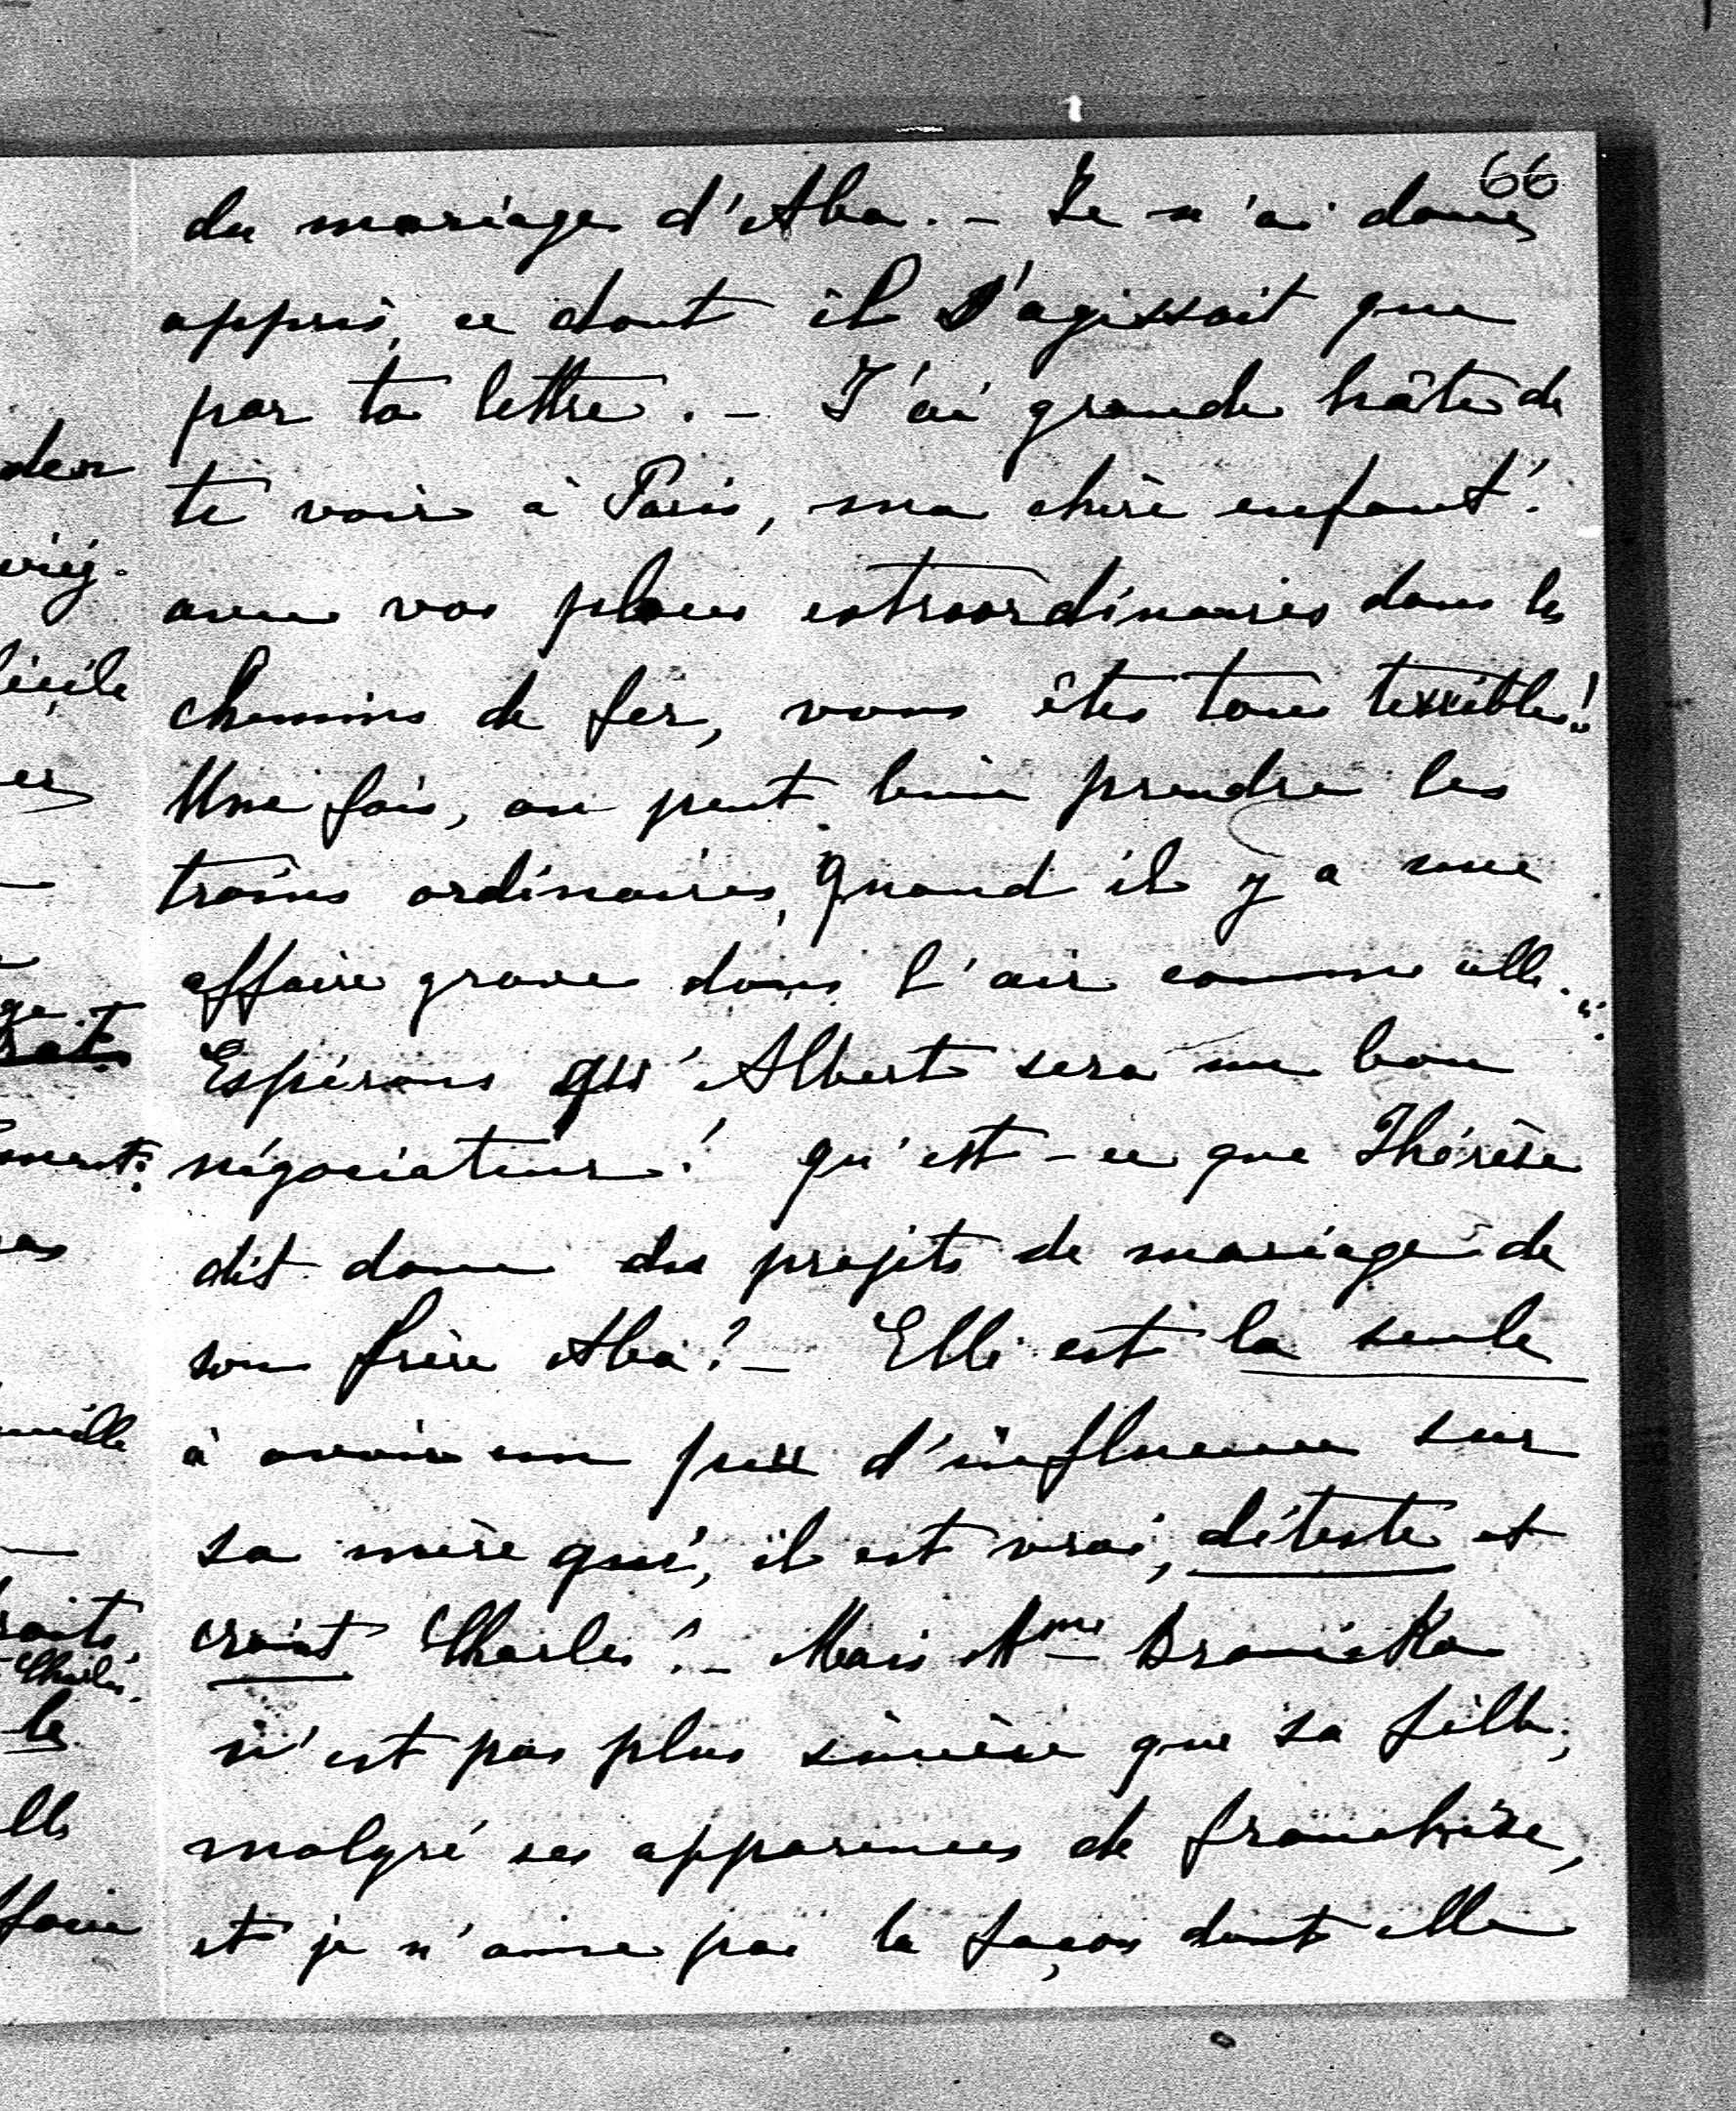 66
du mariage d'Aba. - Je n'ai donc
appris, ce dont il s'agissait que
par ta lettre. - J'ai grande hâte de
te voir à Paris, ma chère enfant!
avec vos places extraordinaires dans les
chemins de fer, vous êtes tous terribles!
Une fois, on peut bien prendre les
trains ordinaires, quand il y a une
affaire grave dans l'air comme celle.
Espérons qu'Albert sera un bon
négociateur! qu'est-ce que Thérèse
dit donc des projets de mariage de
son frère Aba? - Elle est la seule
à avoir un peu d'influence sur
sa mère qui, il est vrai, déteste et
craint Charles! - Mais Mme Branicka
n'est pas plus sincère que sa fille,
malgré ses apparences de franchise,
et je n'aime pas la façon dont elle